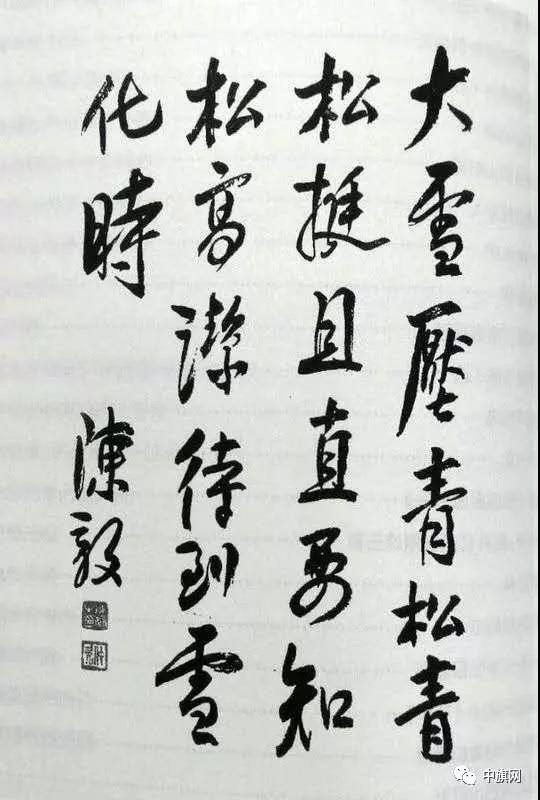 大雪壓青松青
松挺且直要知
松高潔待到雪
化時
陳毅
中旗网